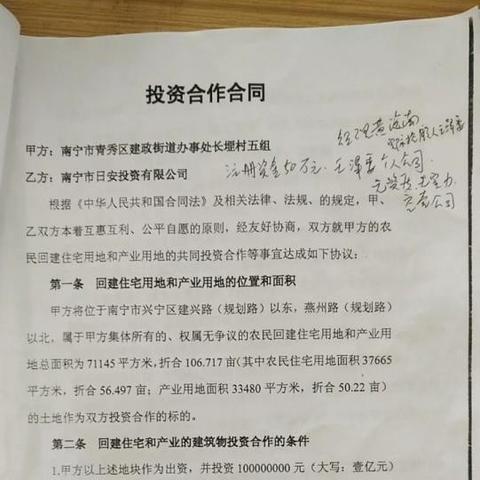 投资合作合同
经理黄海南
甲方：南宁市青秀区建政街道办事处长堽村五组
乙方：南宁市日安投资有限公司
注册资金50万元. 王泽喜个人公司.
无资质
壳公司
根据《中华人民共和国合同法》及相关法律、法规、的规定，甲、
乙双方本着互惠互利、公平自愿的原则，经友好协商，双方就甲方的农
民回建住宅用地和产业用地的共同投资合作等事宜达成如下协议：
第一条 回建住宅用地和产业用地的位置和面积
甲方将位于南宁市兴宁区建兴路（规划路）以东，燕州路（规划路）
以北，属于甲方集体所有的、权属无争议的农民回建住宅用地和产业用
地总面积为 71145 平方米，折合 106.717 亩（其中农民住宅用地面积 37665
平方米，折合 56.497 亩；产业用地面积 33480 平方米，折合 50.22 亩）
的土地作为双方投资合作的标的。
第二条 回建住宅和产业的建筑物投资合作的条件
1.甲方以上述地块作为出资，并投资 100000000 元（大写：壹亿元）